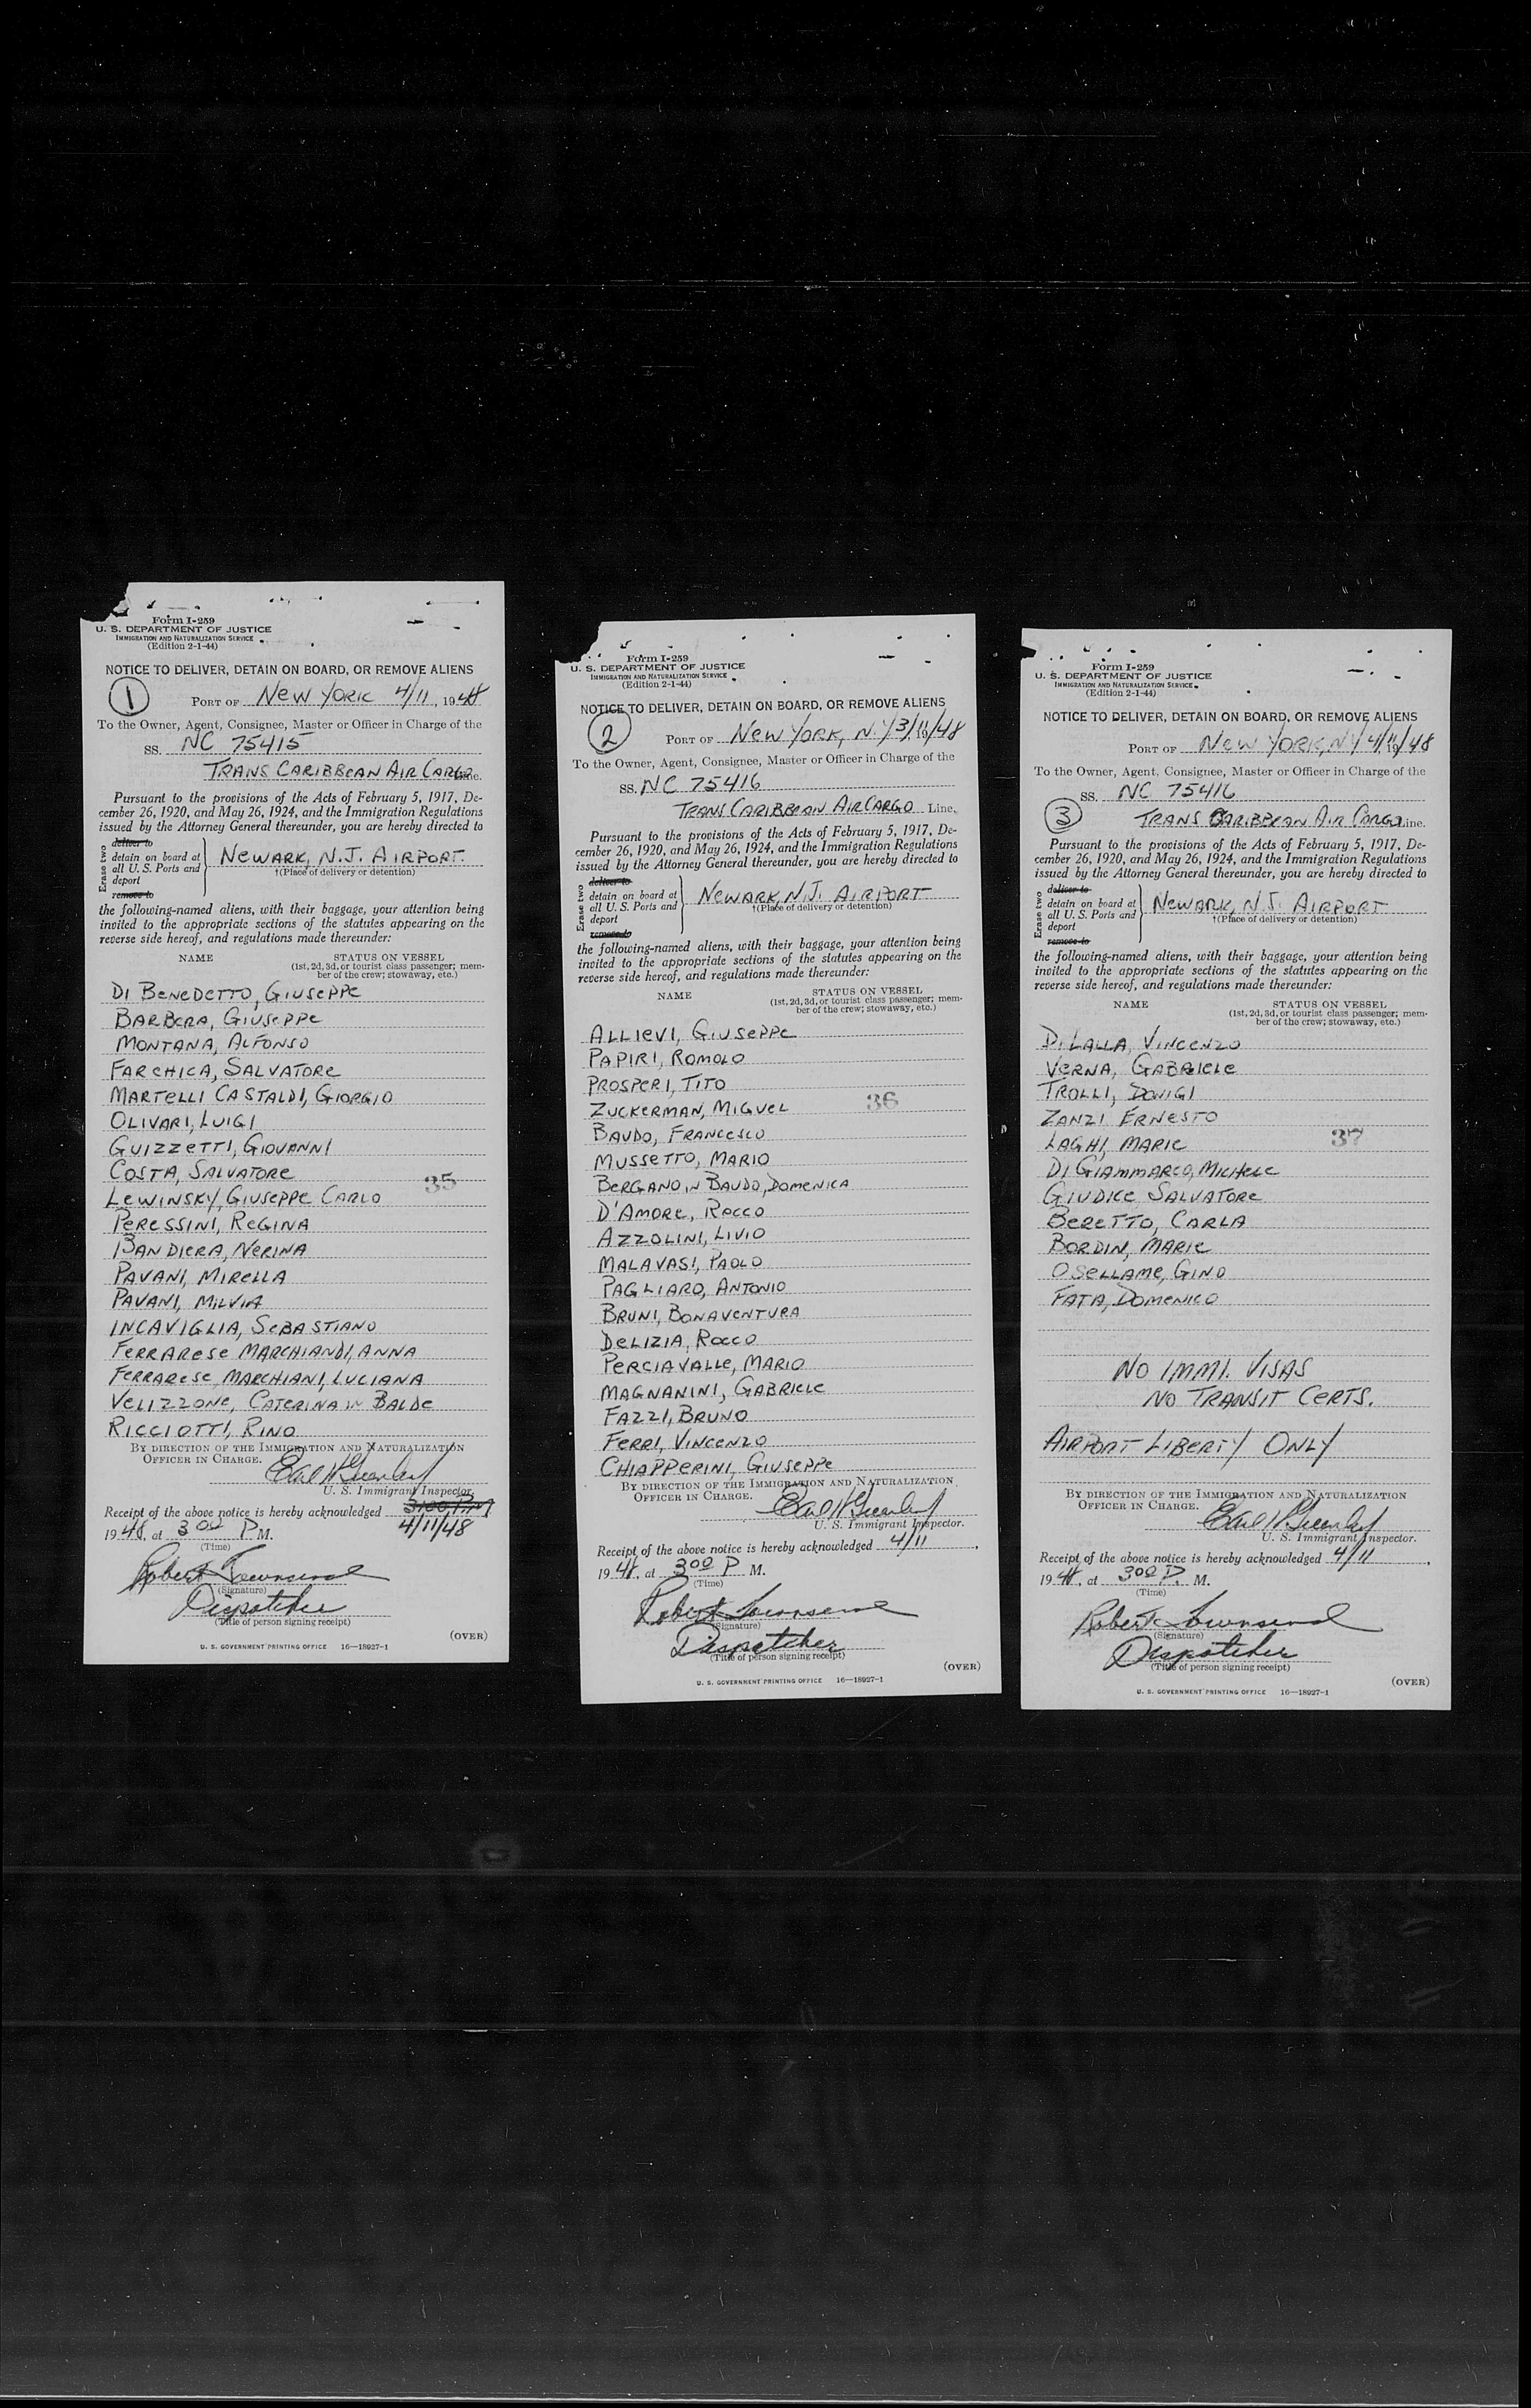 Form I-259
U. S. DEPARTMENT OF JUSTICE
IMMIGRATION AND NATURALIZATION SERVICE
(Edition 2-1-44)
NOTICE TO DELIVER, DETAIN ON BOARD, OR REMOVE ALIENS
1
PORT OF NEW YORK 4/11, 1948
To the Owner, Agent, Consignee, Master or Officer in Charge of the
SS. NC 75415
TRANS CARIBBEAN AIR CARGO Line.
Pursuant to the provisions of the Acts of February 5, 1917, De-
cember 26, 1920, and May 26, 1924, and the Immigration Regulations
issued by the Attorney General thereunder, you are hereby directed to
Erase two
deliver to
detain on board at
all U. S. Ports and
deport
remove to
NEWARK, N.J. AIRPORT.
†(Place of delivery or detention)
the following-named aliens, with their baggage, your attention being
invited to the appropriate sections of the statutes appearing on the
reverse side hereof, and regulations made thereunder:
NAME STATUS ON VESSEL
(1st, 2d, 3d, or tourist class passenger; mem-
ber of the crew; stowaway, etc.)
DI BENEDETTO, GIUSEPPE
BARBERA, GIUSEPPE
MONTANA, ALFONSO
FARCHICA, SALVATORE
MARTELLI CASTALDI, GIORGIO
OLIVARI, LUIGI
GUIZZETTI, GIOVANNI
COSTA, SALVATORE
35
LEWINSKY, GIUSEPPE CARLO
PERESSINI, REGINA
BANDIERA, NERINA
PAVANI, MIRELLA
PAVANI, MILVIA
INCAVIGLIA, SEBASTIANO
FERRARESE MARCHIANDI, ANNA
FERRARESE MARCHIANI, LUCIANA
VELIZZONE, CATERINA IN BALDE
RICCIOTTI, RINO
BY DIRECTION OF THE IMMIGRATION AND NATURALIZATION
OFFICER IN CHARGE.
U. S. Immigrant Inspector.
3:00 P.M
Receipt of the above notice is hereby acknowledged 4/11/48
1948, at 3 00 P M.
(Time)
Robert Townsend
(Signature)
Dispatcher
(Title of person signing receipt)
(OVER)
U. S. GOVERNMENT PRINTING OFFICE 16—18927-1
Form I-259
U. S. DEPARTMENT OF JUSTICE
IMMIGRATION AND NATURALIZATION SERVICE
(Edition 2-1-44)
NOTICE TO DELIVER, DETAIN ON BOARD, OR REMOVE ALIENS
2
PORT OF NEW YORK, N.Y 3/11/48
To the Owner, Agent, Consignee, Master or Officer in Charge of the
SS. NC 75416
TRANS CARIBBEAN AIR CARGO Line.
Pursuant to the provisions of the Acts of February 5, 1917, De-
cember 26, 1920, and May 26, 1924, and the Immigration Regulations
issued by the Attorney General thereunder, you are hereby directed to
Erase two
deliver to
detain on board at
all U. S. Ports and
deport
remove to
NEWARK, N.J. AIRPORT
†(Place of delivery or detention)
the following-named aliens, with their baggage, your attention being
invited to the appropriate sections of the statutes appearing on the
reverse side hereof, and regulations made thereunder:
NAME STATUS ON VESSEL
(1st, 2d, 3d, or tourist class passenger; mem-
ber of the crew; stowaway, etc.)
ALLIEVI, GIUSEPPE
PAPIRI, ROMOLO
PROSPERI, TITO
ZUCKERMAN, MIGUEL
36
BAUDO, FRANCESCO
MUSSETTO, MARIO
BERGANO IN BAUDO, DOMENICA
D'AMORE, ROCCO
AZZOLINI, LIVIO
MALAVASI, PAOLO
PAGLIARO, ANTONIO
BRUNI, BONAVENTURA
DELIZIA, ROCCO
PERCIAVALLE, MARIO
MAGNANINI, GABRIELE
FAZZI, BRUNO
FERRI, VINCENZO
CHIAPPERINI, GIUSEPPE
BY DIRECTION OF THE IMMIGRATION AND NATURALIZATION
OFFICER IN CHARGE.
U. S. Immigrant Inspector.
Receipt of the above notice is hereby acknowledged 4/11,
1948, at 300 P M.
(Time)
Robert Townsend
(Signature)
Dispatcher
(Title of person signing receipt)
(OVER)
U. S. GOVERNMENT PRINTING OFFICE 16—18927-1
Form I-259
U. S. DEPARTMENT OF JUSTICE
IMMIGRATION AND NATURALIZATION SERVICE
(Edition 2-1-44)
NOTICE TO DELIVER, DETAIN ON BOARD, OR REMOVE ALIENS
PORT OF NEW YORK, NY 4/11/48
To the Owner, Agent, Consignee, Master or Officer in Charge of the
SS. NC 75416
3
TRANS CARIBBEAN AIR CARGO Line.
Pursuant to the provisions of the Acts of February 5, 1917, De-
cember 26, 1920, and May 26, 1924, and the Immigration Regulations
issued by the Attorney General thereunder, you are hereby directed to
Erase two
deliver to
detain on board at
all U. S. Ports and
deport
remove to
NEWARK, N.J. AIRPORT
†(Place of delivery or detention)
the following-named aliens, with their baggage, your attention being
invited to the appropriate sections of the statutes appearing on the
reverse side hereof, and regulations made thereunder:
NAME STATUS ON VESSEL
(1st, 2d, 3d, or tourist class passenger; mem-
ber of the crew; stowaway, etc.)
DI LALLA, VINCENZO
VERNA, GABRIELE
TROLLI, DOVIGI
ZANZI ERNESTO
LAGHI, MARIE
37
DI GIAMMARCO, MICHELE
GIUDICE SALVATORE
BERETTO, CARLA
BORDIN, MARIE
OSELLAME, GINO
FATA, DOMENICO
NO IMMI. VISAS
NO TRANSIT CERTS.
AIRPORT LIBERTY ONLY
BY DIRECTION OF THE IMMIGRATION AND NATURALIZATION
OFFICER IN CHARGE.
U. S. Immigrant Inspector.
Receipt of the above notice is hereby acknowledged 4/11,
1948, at 300 P. M.
(Time)
Robert Townsend
(Signature)
Dispatcher
(Title of person signing receipt)
(OVER)
U. S. GOVERNMENT PRINTING OFFICE 16—18927-1